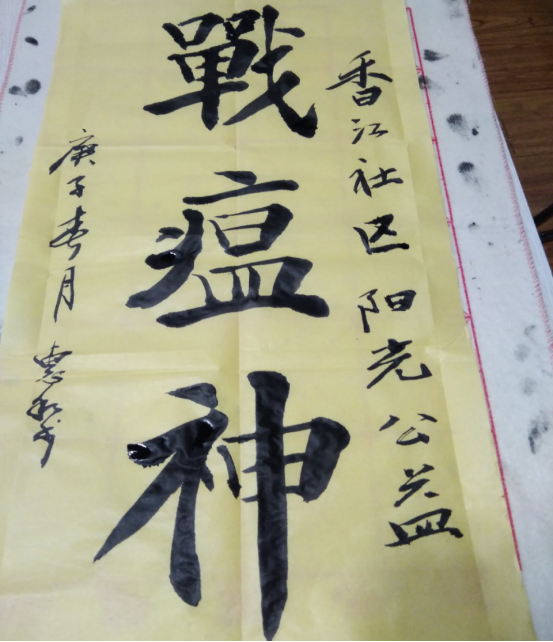 香江社区阳光公益
戰瘟神
庚子春月 惠